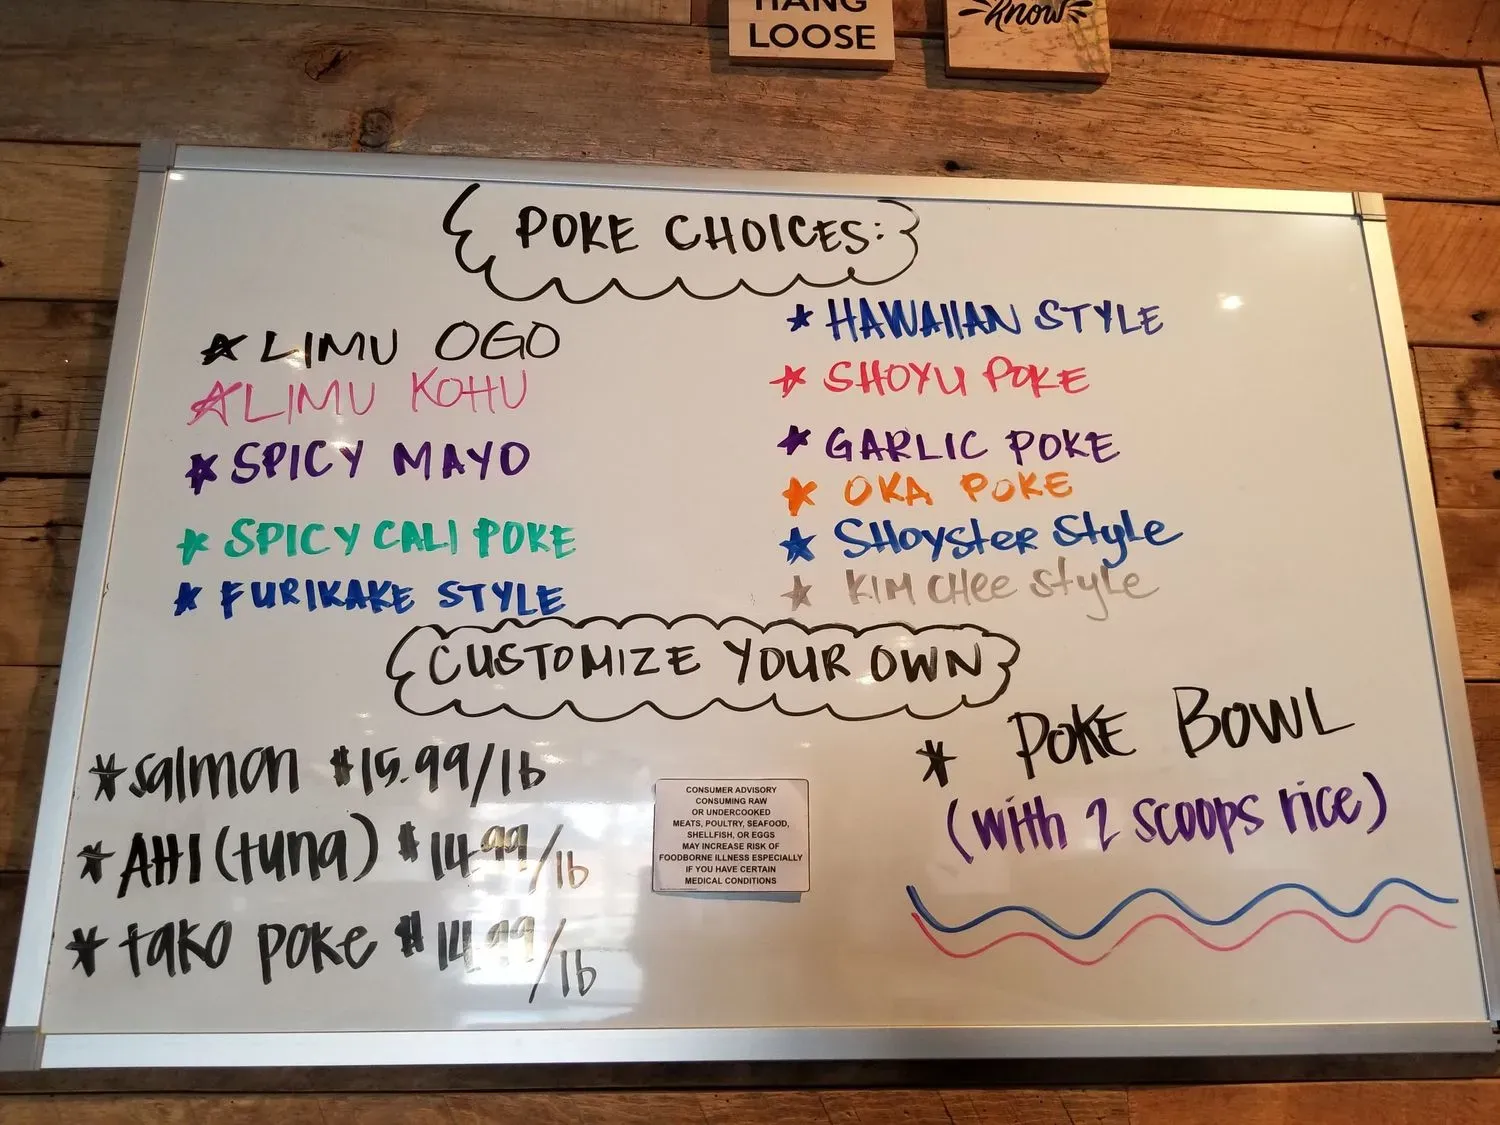 HANG
LOOSE
Know
POKE CHOICES:
LIMU OGO
LIMU KOHU
SPICY MAYO
SPICY CALI POKE
FURIKAKE STYLE
HAWAIIAN STYLE
SHOYU POKE
GARLIC POKE
OKA POKE
SHOYSTER STYLE
KIM CHEE STYLE
CUSTOMIZE YOUR OWN
salmon $15.99/lb
AHI (tuna) $14.99/lb
tako poke $14.99/lb
CONSUMER ADVISORY
CONSUMING RAW
OR UNDERCOOKED
MEATS, POULTRY, SEAFOOD,
SHELLFISH, OR EGGS
MAY INCREASE RISK OF
FOODBORNE ILLNESS ESPECIALLY
IF YOU HAVE CERTAIN
MEDICAL CONDITIONS
POKE BOWL
(with 2 scoops rice)